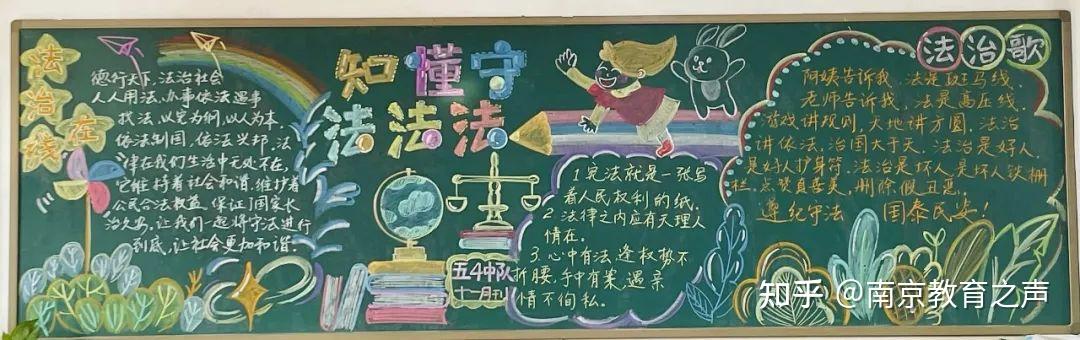 法治在线
德行天下,法治社会
人人用法,办事依法遇事
找法,以宪为纲,以人为本.
依法制国,依法兴邦,法
律在我们生活中无处不在,
它维持着社会和谐,维护着
公民合法权益,保证了国家长
治久安,让我们一起将守法进行
到底,让社会更加和谐。
知法 懂法 守法
五4中队
十一月刊
1.宪法就是一张写
着人民权利的纸.
2.法律之内应有天理人
情在。
3.心中有法,逢权势不
折腰,手中有案,遇亲
情不徇私。
法治歌
阿姨告诉我,法是斑马线,
老师告诉我,法是高压线.
游戏讲规则,天地讲方圆,法治
讲依法,治国大于天,法治是好人,
是好人护身符.法治是坏人是坏人铁栅
栏.点赞真善美,删除假丑恶,
遵纪守法 国泰民安!
知乎 @南京教育之声